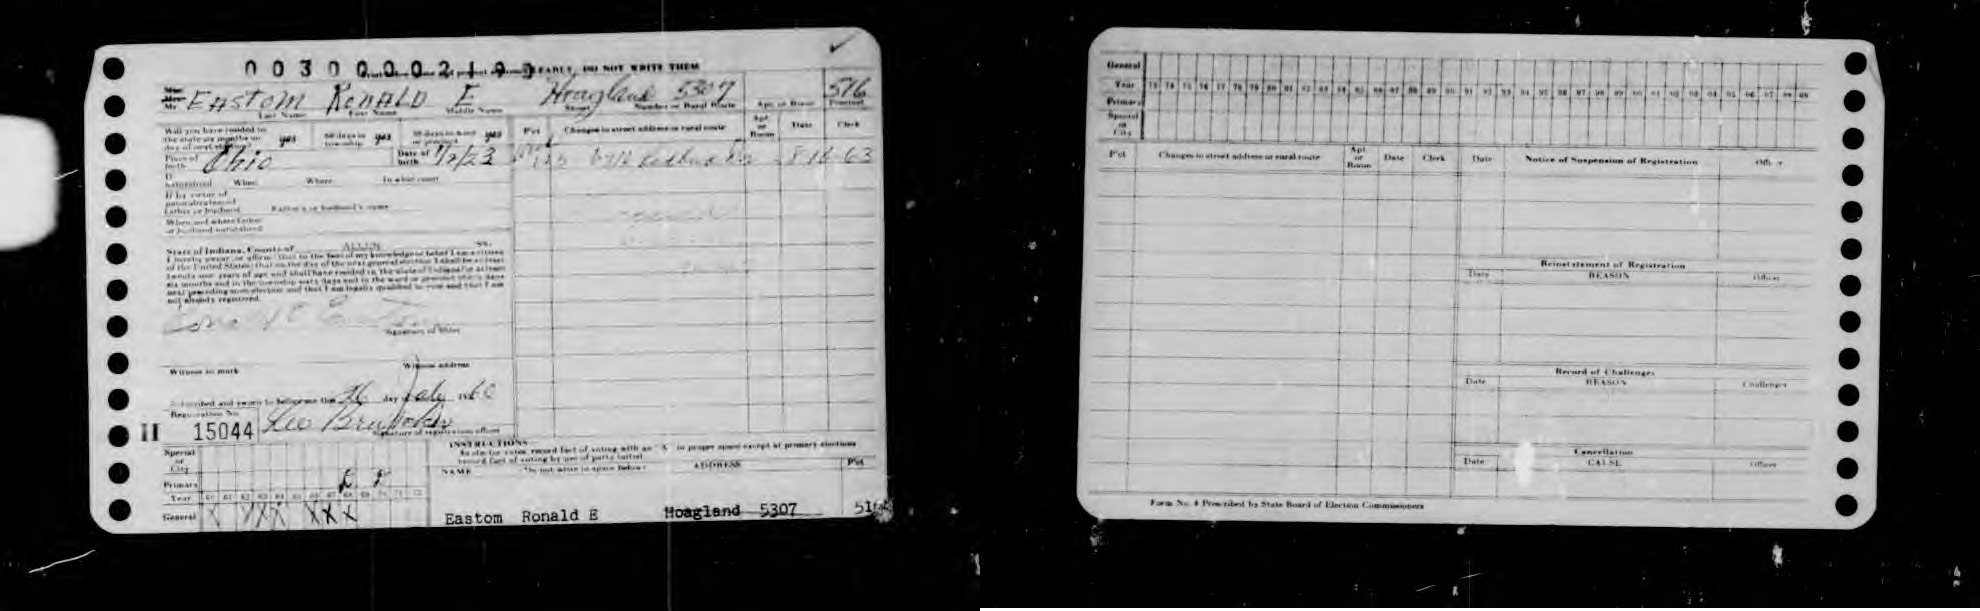 0 0 3 0 0 0 0 2 1 9 0
CLEARLY, DO NOT WRITE THEM
Mr. EASTOM RONALD E Hoagland 5307 516
Last Name First Name Middle Name Street Number or Rural Route Apt. or Room Precinct
Will you have resided in the state six months on day of next election? yes 60 days in township yes 30 days in ward or precinct yes
Place of birth Ohio Date of birth 1/2/23
If naturalized When Where In what court
If by virtue of naturalization of father or husband Father's or husband's name
When and where father or husband naturalized
State of Indiana, County of ALLEN SS.
I hereby swear, or affirm, that to the best of my knowledge or belief I am a citizen
of the United States; that on the day of the next general election I shall be at least
twenty one years of age and shall have resided in the state of Indiana for at least
six months and in the township sixty days and in the ward or precinct thirty days
next preceding such election and that I am legally qualified to vote and that I am
not already registered.
Signature of Voter
Witness to mark Witness address
Subscribed and sworn to before me this 26 day of July 1960
Registration No.
H 15044 Leo
Signature of registration officer
Special or City
Primary
Year 60 61 62 63 64 65 66 67 68 69 70 71 72
General X X X X X X X
Pct Changes in street address or rural route Apt. or Room Date Clerk
8-16-63
INSTRUCTIONS
As elector votes, record fact of voting with an "X" in proper space except at primary elections
record fact of voting by use of party initial
NAME (Do not write in space below) ADDRESS Pct
Eastom Ronald E Hoagland 5307 516
General
Year 73 74 75 76 77 78 79 80 81 82 83 84 85 86 87 88 89 90 91 92 93 94 95 96 97 98 99
Primary
Special or City
Pct Changes in street address or rural route Apt. or Room Date Clerk
Date Notice of Suspension of Registration Officer
Reinstatement of Registration
Date REASON Officer
Record of Challenges
Date REASON Challenger
Cancellation
Date CAUSE Officer
Form No. 4 Prescribed by State Board of Election Commissioners